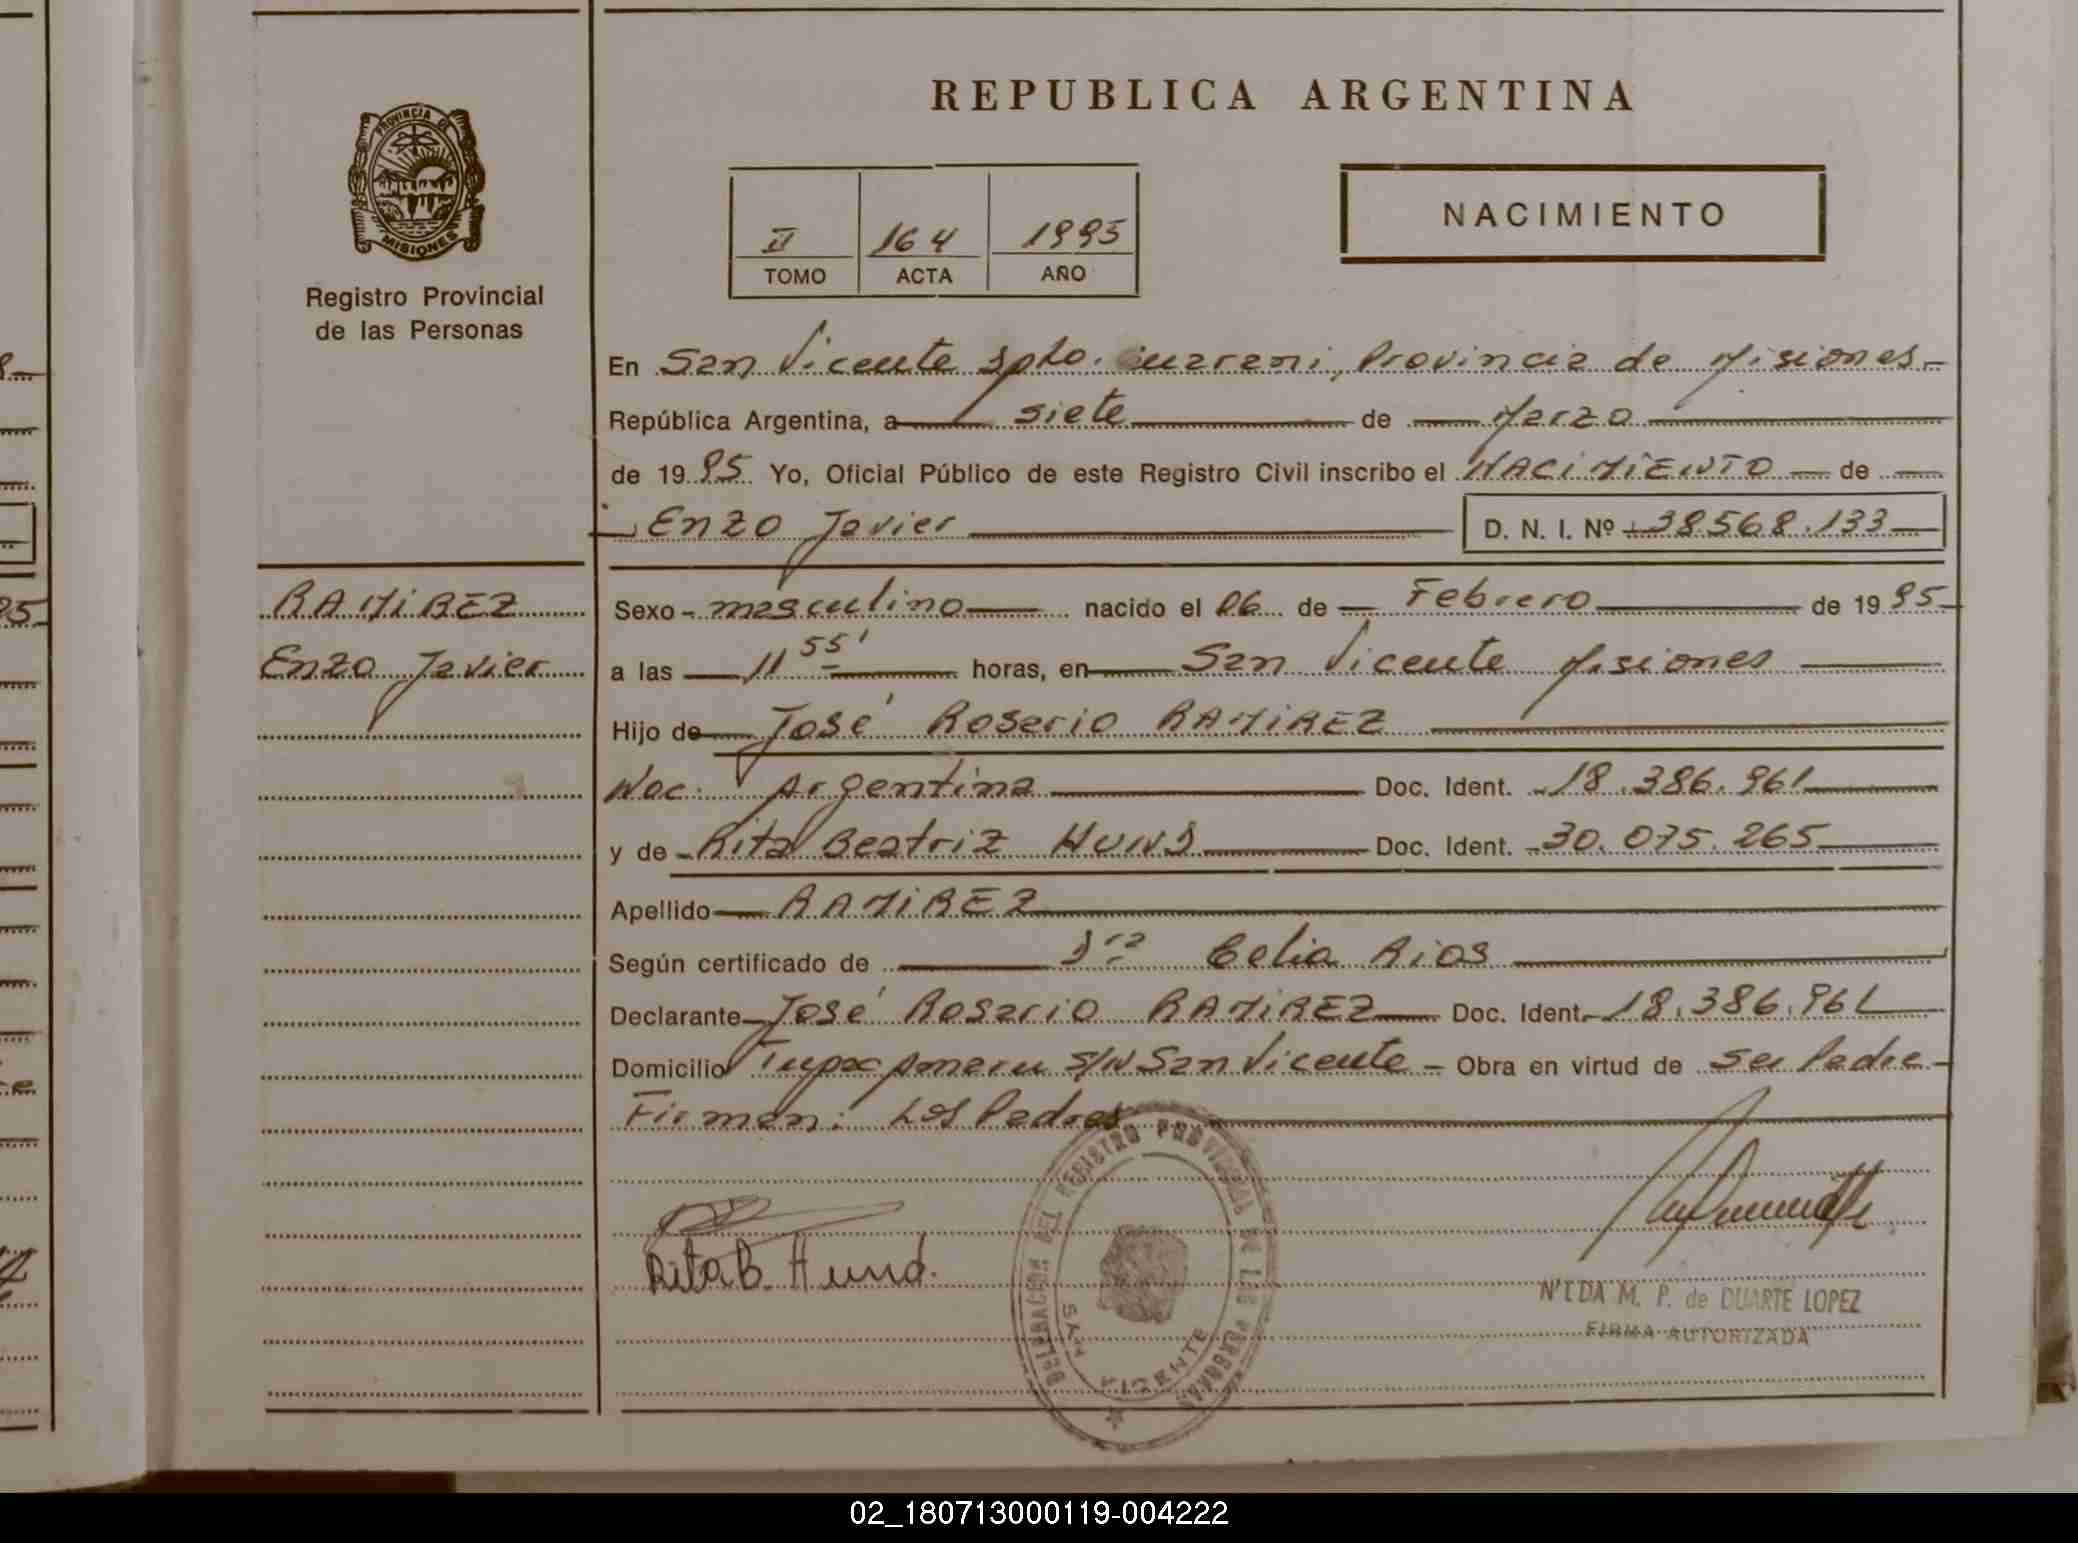 REPUBLICA ARGENTINA
PROVINCIA DE
MISIONES
Registro Provincial
de las Personas
II 164 1995
TOMO ACTA AÑO
NACIMIENTO
En San Vicente Dpto. Guarani, Provincia de Misiones.-
República Argentina, a siete de Marzo
de 1995 Yo, Oficial Público de este Registro Civil inscribo el NACIMIENTO de
Enzo Javier D. N. I. Nº 38568.133
RAMIREZ
Enzo Javier
Sexo - masculino nacido el 06 de Febrero de 1995
a las 11 55' horas, en San Vicente Misiones
Hijo de José Rosario RAMIREZ
Nac. Argentina Doc. Ident. 18.386.961
y de Rita Beatriz HUND Doc. Ident. 30.075.265
Apellido RAMIREZ
Según certificado de Dra Celia Rios
Declarante José Rosario RAMIREZ Doc. Ident. 18.386.961
Domicilio Tupac Amaru S/N San Vicente - Obra en virtud de Ser Padre
Firman: Los Padres
Rita B. Hund.
DELEGACION DEL REGISTRO PROVINCIAL DE LAS PERSONAS
SAN VICENTE
M. P. de DUARTE LOPEZ
FIRMA AUTORIZADA
02_180713000119-004222